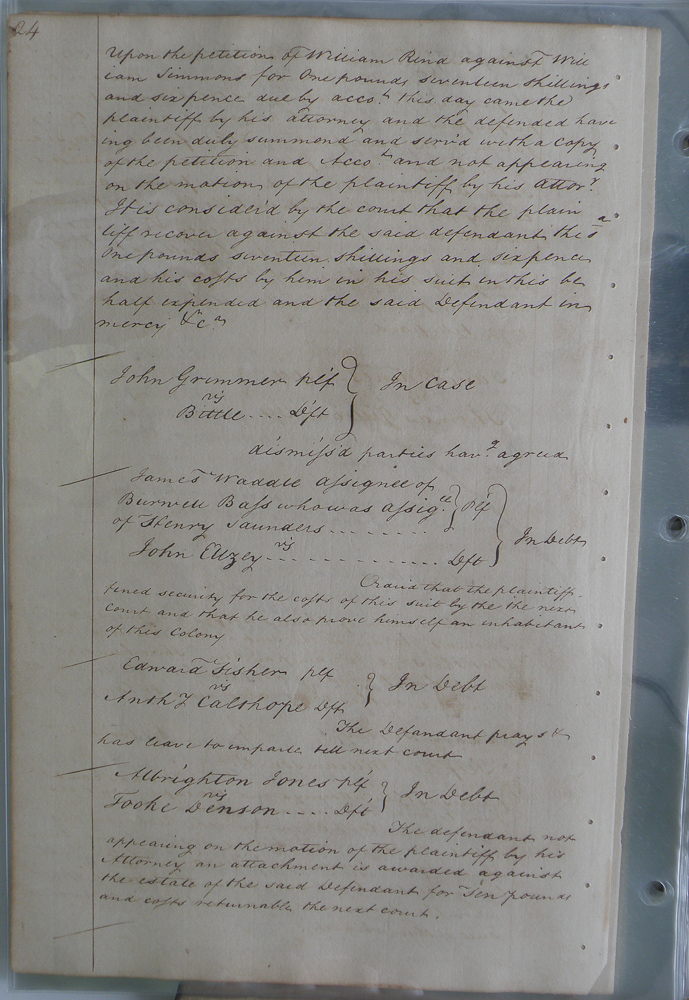 24
Upon the petition of William Rind against Will
iam Simmons for One pounds seventeen shillings
and six pence due by acco.t this day came the
plaintiff by his attorney and the defended have
ing been duly summond and serv'd with a copy
of the petition and Acco.t and not appearing
on the motion of the plaintiff by his attor.y
It is consider'd by the court that the plain
tiff recover against the said defendant the s.d
One pounds seventeen shillings and sixpence
and his costs by him in his suit in this be
half expended and the said Defendant in
mercy &c.a
John Grimmer plf } In Case
vs
Bittle .... Dft
dismiss'd parties hav.g agreed
James Waddle assignee of
Burwell Bass who was assig.ee } plf
of Henry Saunders ........ } In Debt
vs
John Ellzey .............. Dft
Ord'd that the plaintiff
security for the costs of this suit by the the next
Court and that he also prove himself an inhabitant
of this Colony
Edward Fisher plf } In Debt
vs
Anth.y Calthope Dft
The Defandant prays &
has leave to imparle till next court
Albrighton Jones plf } In Debt
vs
Tooke Denson .... Dft
The defendant not
appearing on the motion of the plaintiff by his
Attorney an attachment is awarded against
the estate of the said Defendant for Ten pounds
and costs returnable the next court.